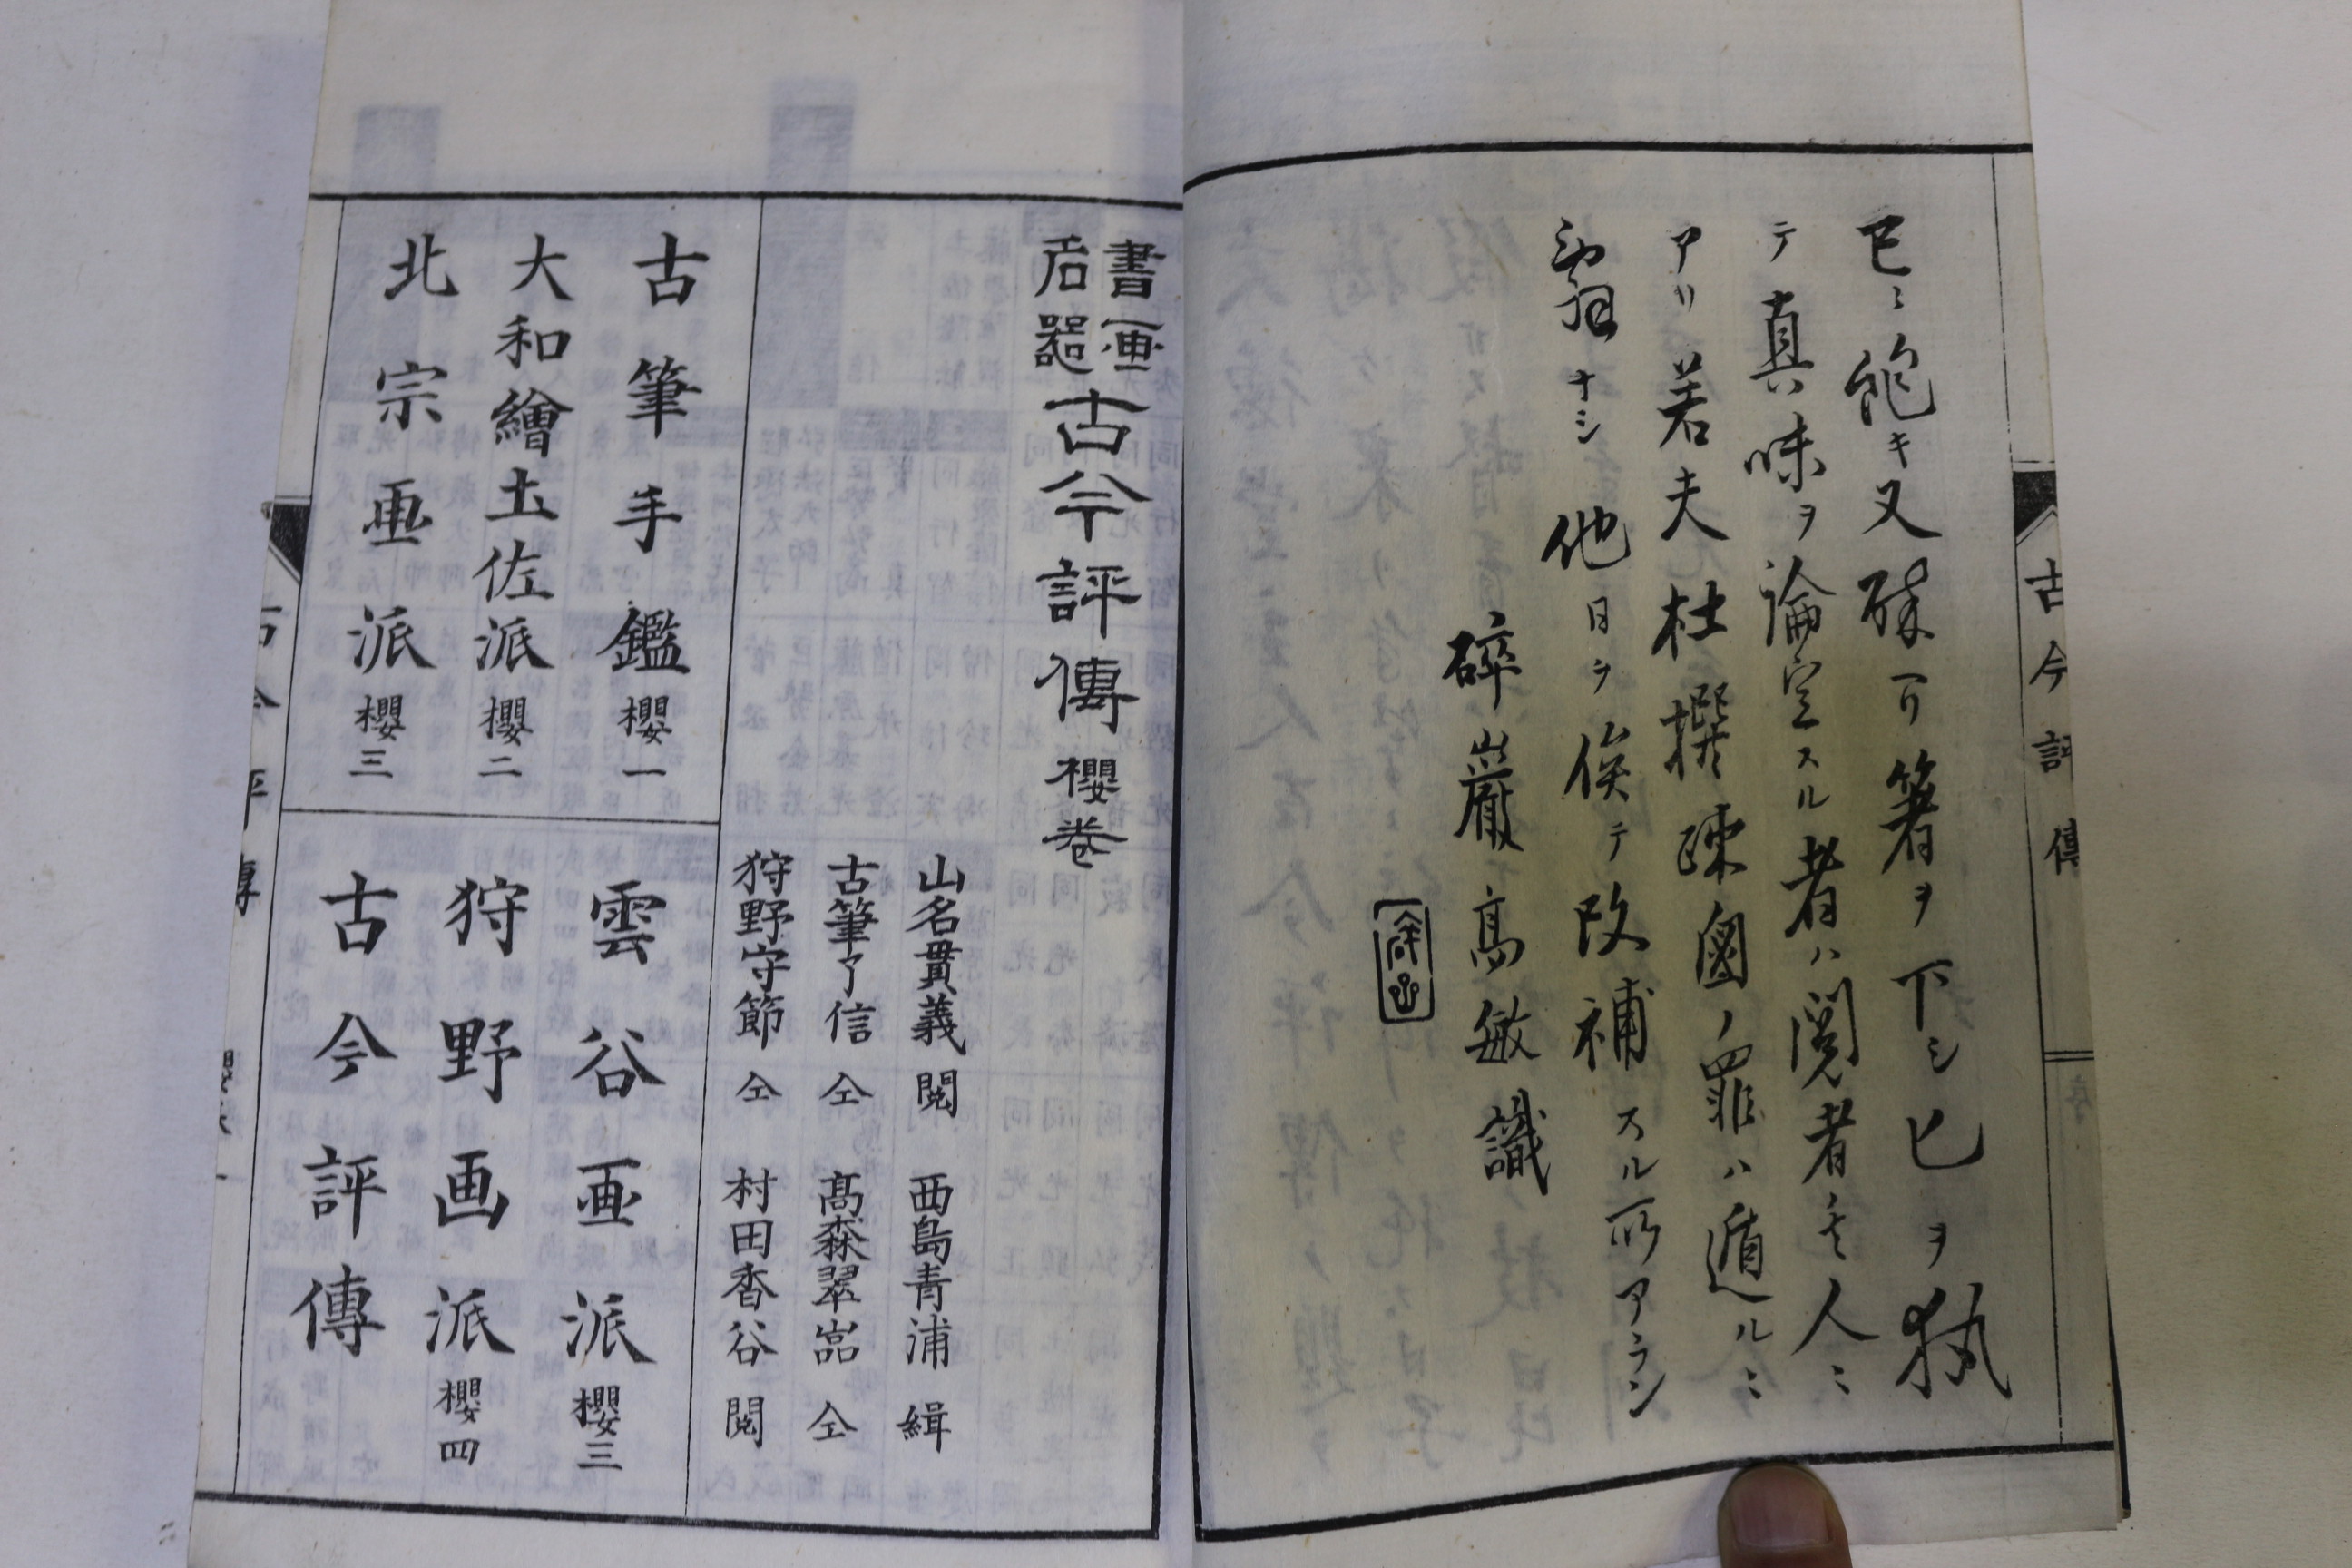 古今評傳
序
已ニ飽キ又殽ヿ箸ヲ下シ匕ヲ執
テ真味ヲ論定スル者ハ閲者其人ニ
アリ若夫杜撰疎鹵ノ罪ハ遁ルニ
辭ナシ他日ヲ俟テ改補スル所アラン
碎巖高敏識
書画
后器
古今評傳櫻巻
山名貫義閲 西島青浦緝
古筆了信仝 髙森翠嵓仝
狩野守節仝 村田香谷閲
古筆手鑑櫻一
大和繪土佐派櫻二
北宗画派櫻三
雲谷画派櫻三
狩野画派櫻四
古今評傳
古今評傳